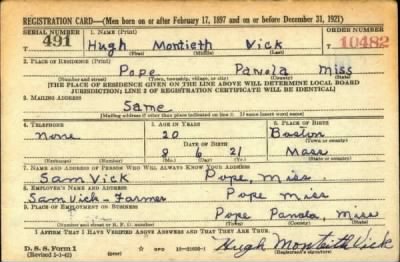 REGISTRATION CARD—(Men born on or after February 17, 1897 and on or before December 31, 1921)
SERIAL NUMBER 1. NAME (Print) ORDER NUMBER
491 Hugh Montieth Vick 10482
(First) (Middle) (Last)
2. PLACE OF RESIDENCE (Print)
Pope Panola Miss
(Number and street) (Town, township, village, or city) (County) (State)
[THE PLACE OF RESIDENCE GIVEN ON THE LINE ABOVE WILL DETERMINE LOCAL BOARD
JURISDICTION; LINE 2 OF REGISTRATION CERTIFICATE WILL BE IDENTICAL]
3. MAILING ADDRESS
Same
(Mailing address if other than place indicated on line 2. If same insert word same)
4. TELEPHONE 5. AGE IN YEARS 6. PLACE OF BIRTH
None 20 Boston
DATE OF BIRTH (Town or county)
8 6 21 Mass
(Exchange) (Number) (Mo.) (Day) (Yr.) (State or country)
7. NAME AND ADDRESS OF PERSON WHO WILL ALWAYS KNOW YOUR ADDRESS
Sam Vick Pope Miss.
8. EMPLOYER'S NAME AND ADDRESS
Sam Vick - Farmer Pope Miss.
9. PLACE OF EMPLOYMENT OR BUSINESS
Pope Panola, Miss
(Number and street or R. F. D. number) (Town) (County) (State)
I AFFIRM THAT I HAVE VERIFIED ABOVE ANSWERS AND THAT THEY ARE TRUE.
D. S. S. Form 1
(Revised 1-1-42) GPO Hugh Monteith Vick
(Registrant's signature)